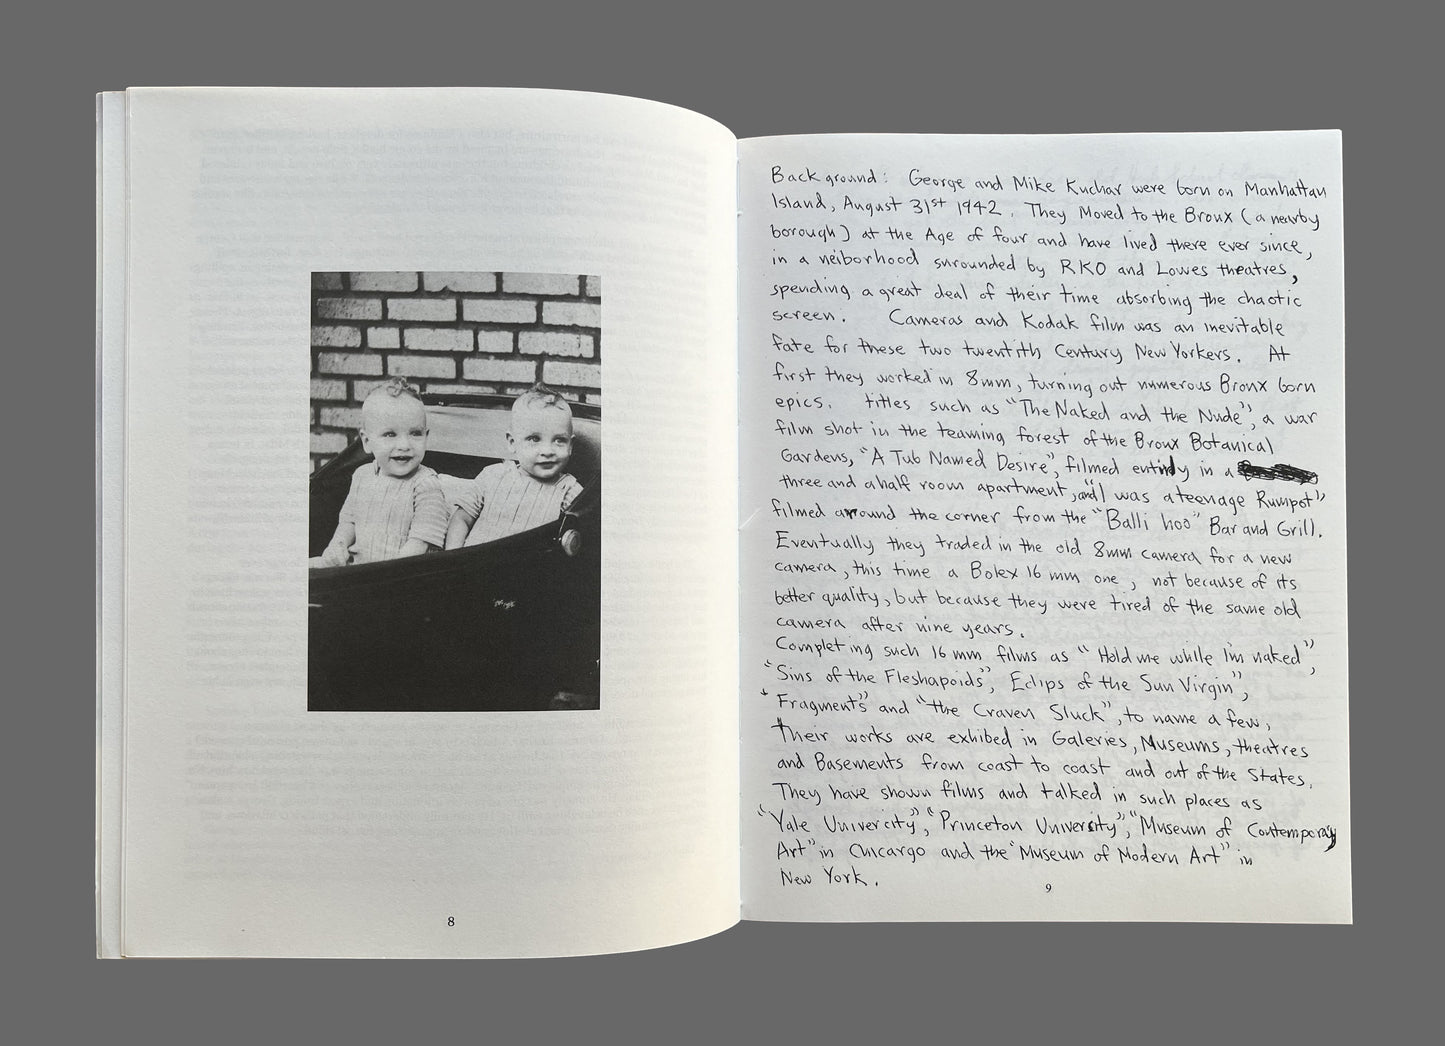 8
Background: George and Mike Kuchar were born on Manhattan
Island, August 31st 1942. They Moved to the Bronx (a nearby
borough) at the Age of four and have lived there ever since,
in a neiborhood surrounded by RKO and Lowes theatres,
spending a great deal of their time absorbing the chaotic
screen. Cameras and Kodak film was an inevitable
fate for these two twentith Century New Yorkers. At
first they worked in 8mm, turning out numerous Bronx born
epics. titles such as "The Naked and the Nude", a war
film shot in the teaming forest of the Bronx Botanical
Gardens, "A Tub Named Desire", filmed entirly in a
three and a half room apartment, and "I was a teenage Rumpot"
filmed around the corner from the "Balli hoo" Bar and Grill.
Eventually they traded in the old 8mm camera for a new
camera, this time a Bolex 16 mm one, not because of its
better quality, but because they were tired of the same old
camera after nine years.
Completing such 16 mm films as "Hold me while I'm naked",
"Sins of the Fleshapoids", Eclips of the Sun Virgin",
"Fragments" and "the Craven Sluck", to name a few,
Their works are exhibed in Galeries, Museums, theatres
and Basements from coast to coast and out of the States.
They have shown films and talked in such places as
"Yale Univercity", "Princeton University", "Museum of Contemporary
Art" in Chicargo and the "Museum of Modern Art" in
New York.
9